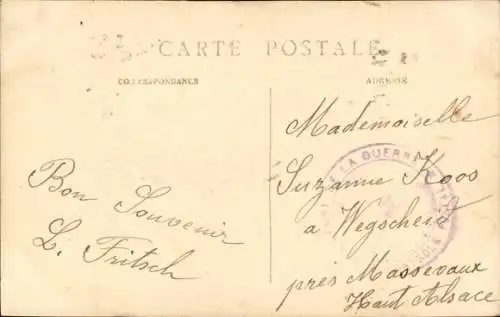 CARTE POSTALE
CORRESPONDANCE
ADRESSE
Bon Souvenir
L. Fritsch
Mademoiselle
Suzanne Koos
a Wegscheid
près Massevaux
Haut Alsace
LA GUERRE